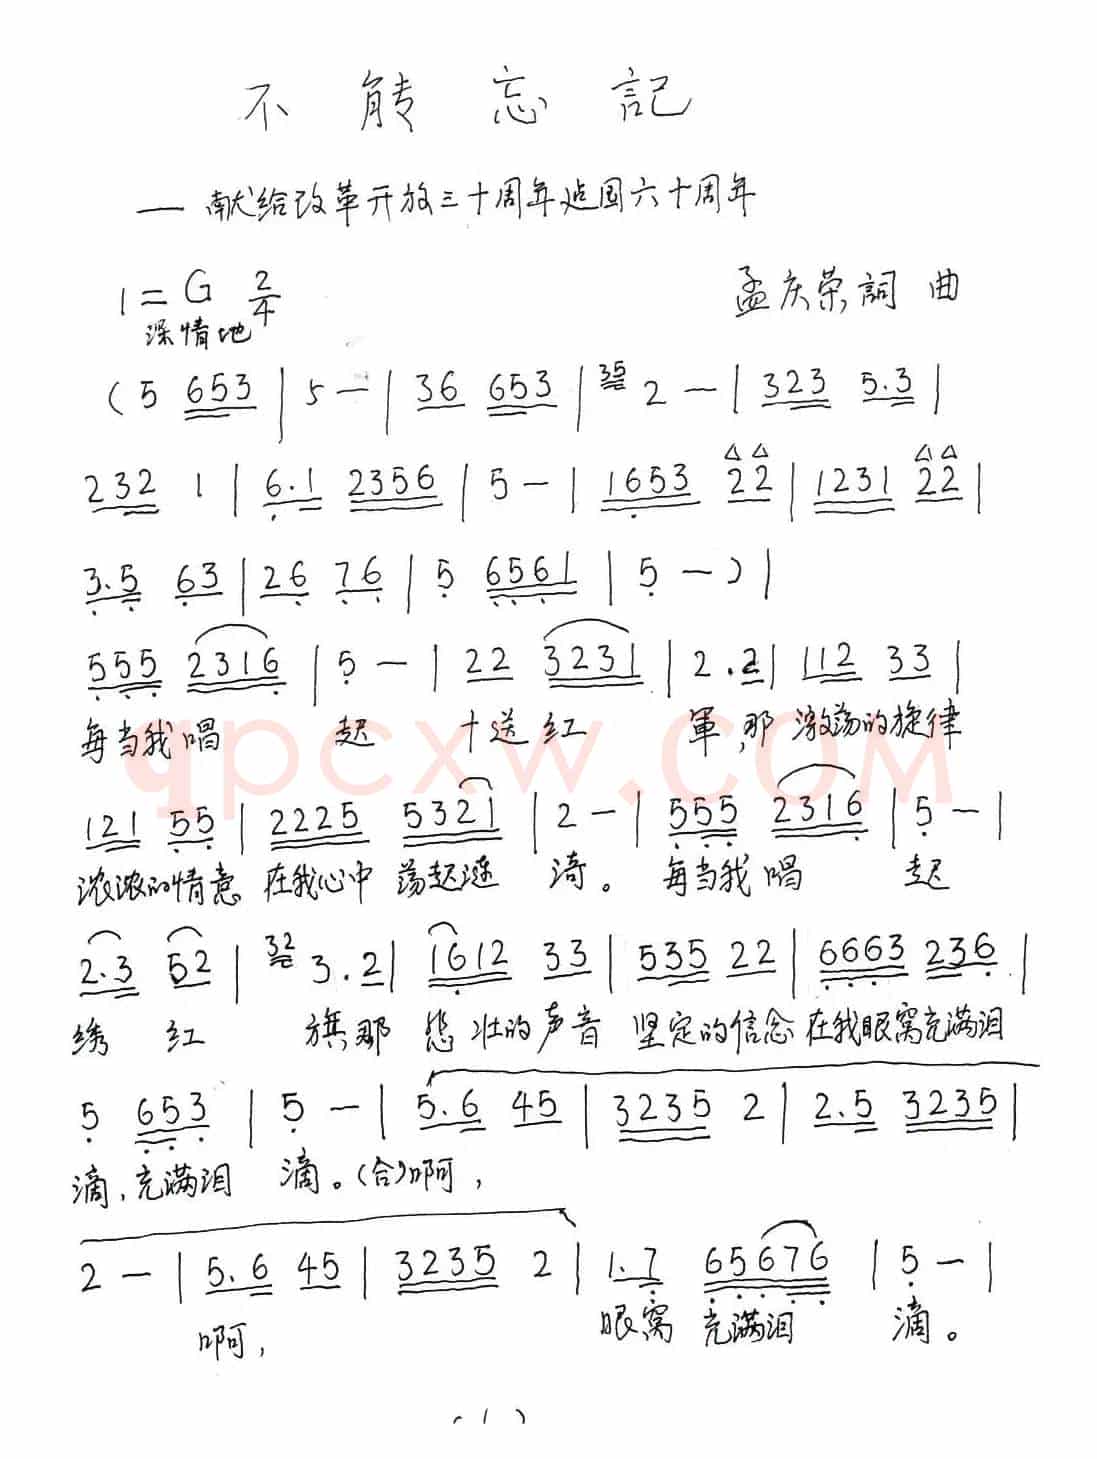 不能忘記
—献给改革开放三十周年造国六十周年
1=G 2/4
孟庆荣詞曲
深情地
(5 653 | 5 — | 36 653 | 35 2 — | 323 5.3 |
232 1 | 6.1 2356 | 5 — | 1653 22 | 1231 22 |
3.5 63 | 26 76 | 5 6561 | 5 — ) |
555 2316 | 5 — | 22 3231 | 2.2 | 112 33 |
每当我唱 起 十送红 軍,那 激荡的旋律
121 55 | 2225 5321 | 2 — | 555 2316 | 5 — |
浓浓的情意 在我心中 荡起涟 漪。 每当我唱 起
2.3 52 | 32 3.2 | 1612 33 | 535 22 | 6663 236 |
绣 红 旗那 悲壮的声音 坚定的信念 在我眼窝充满泪
5 653 | 5 — | 5.6 45 | 3235 2 | 2.5 3235 |
滴,充满泪 滴。(合)啊,
2 — | 5.6 45 | 3235 2 | 1.7 65676 | 5 — |
啊, 眼窝 充满泪 滴。
(1)
qpcxw.COM